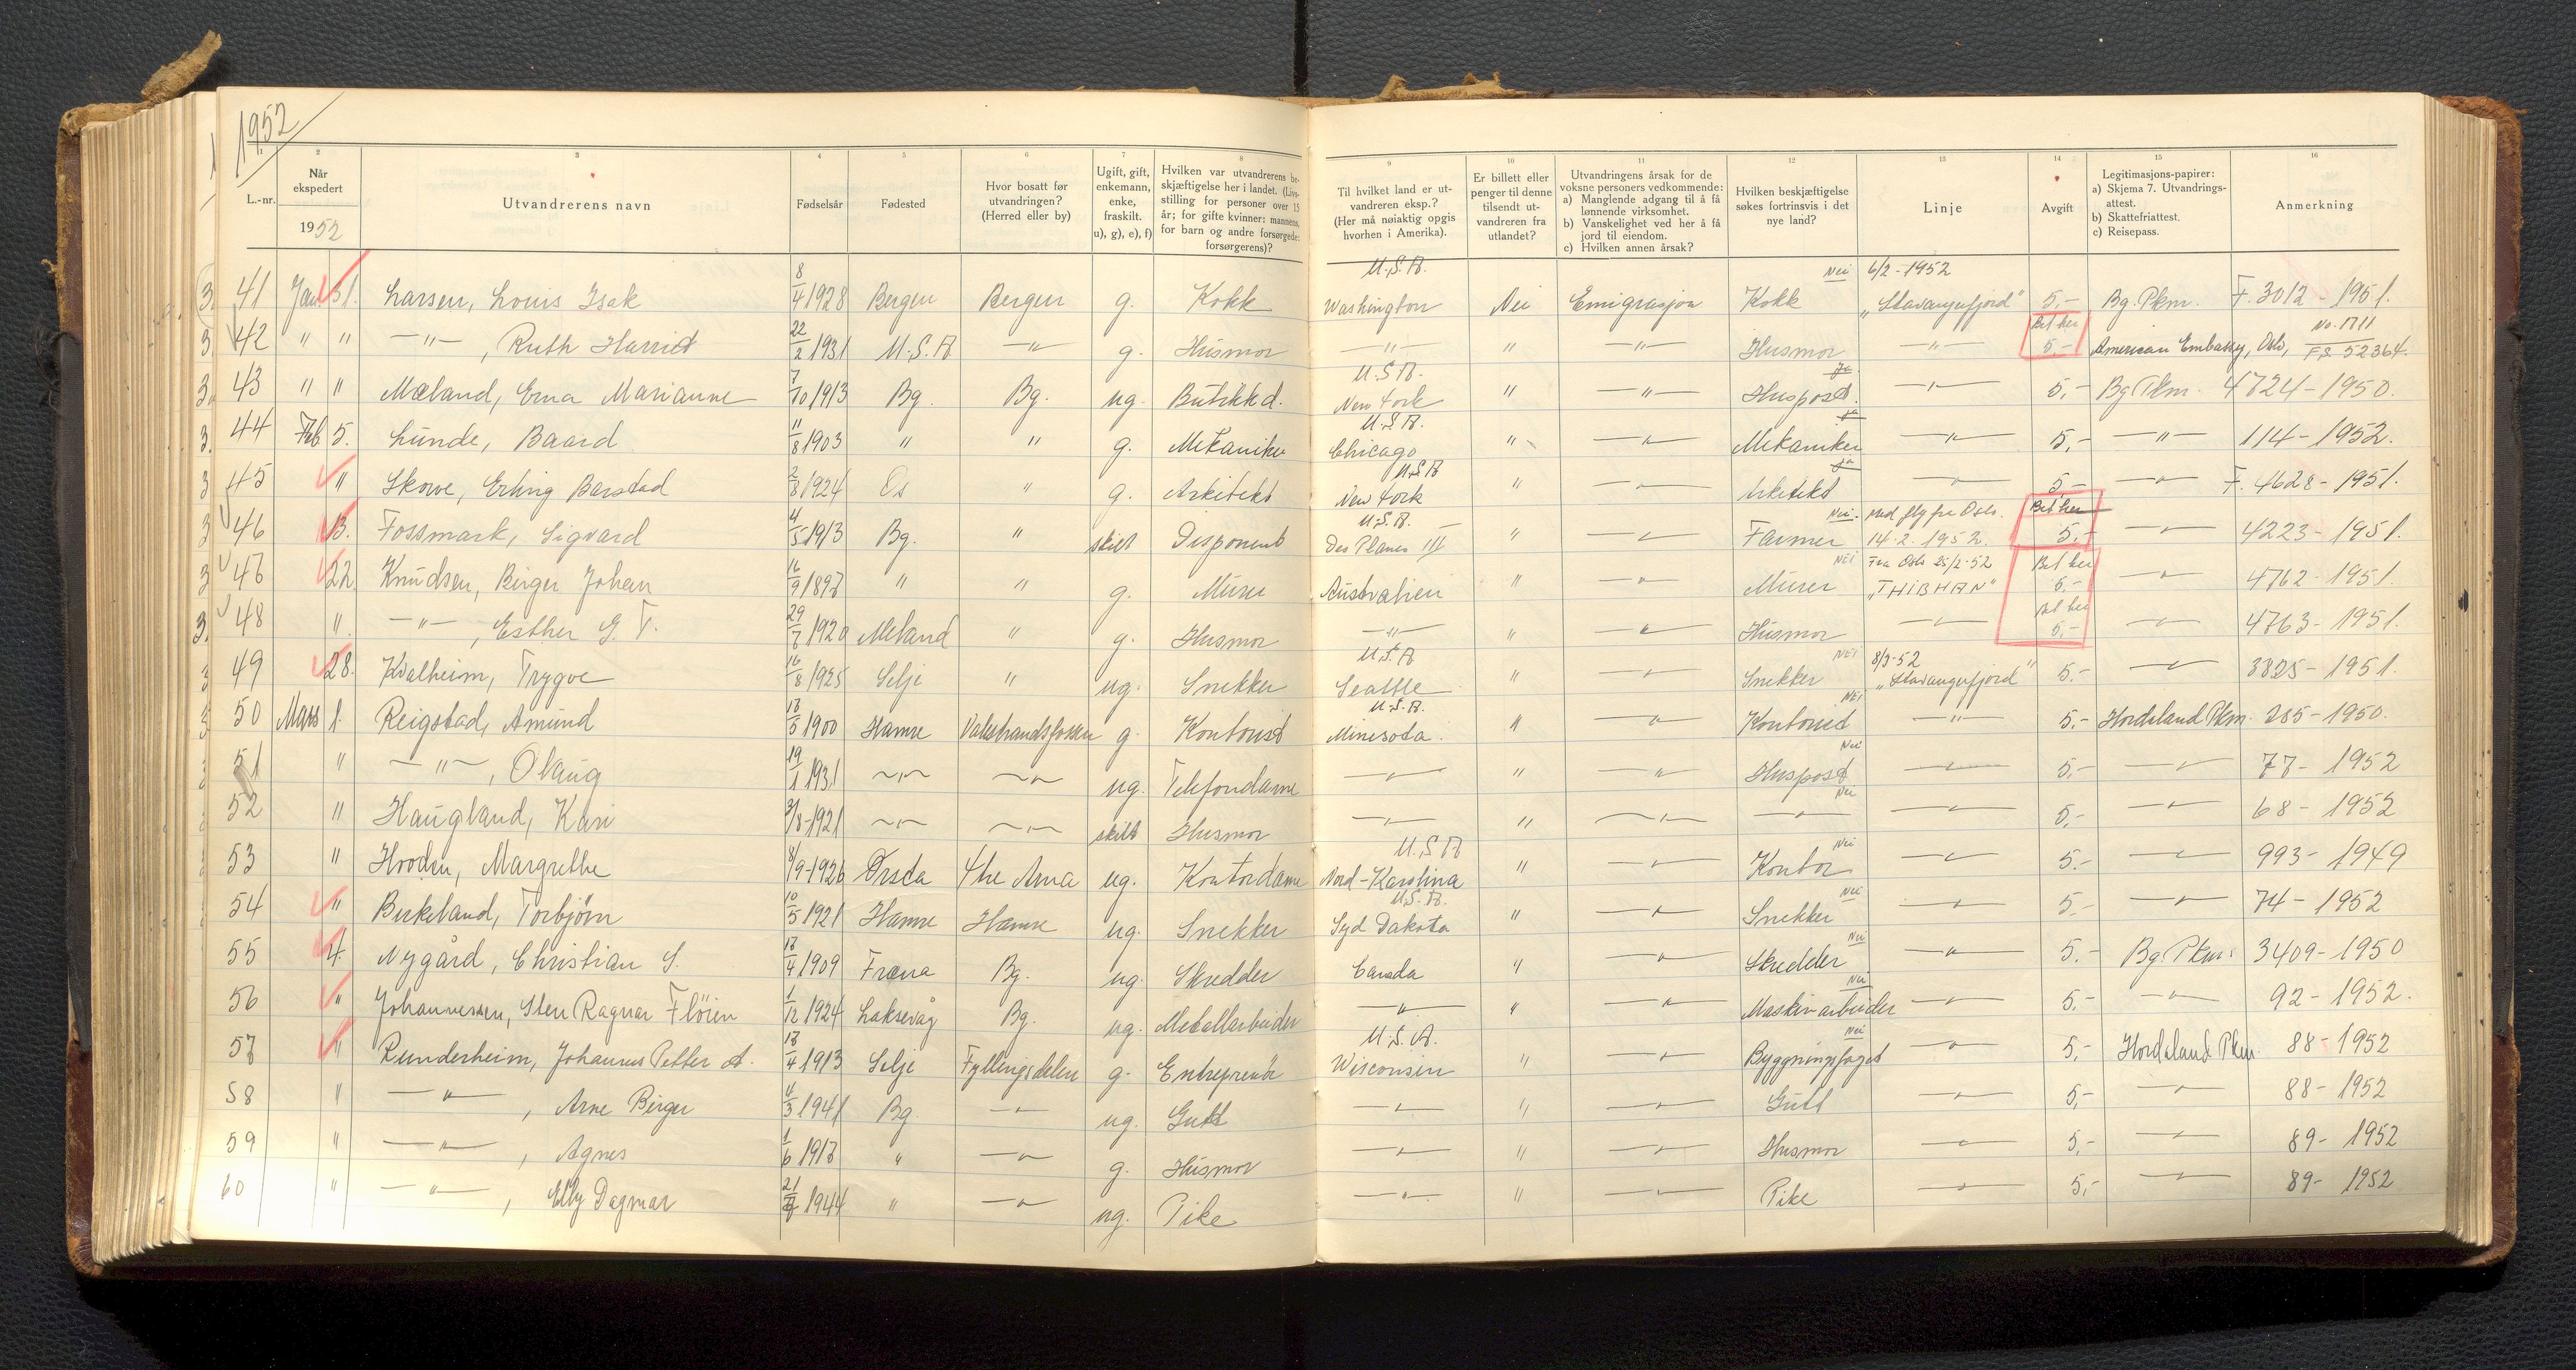 1952
1 2 3 4 5 6 7 8 9 10 11 12 13 14 15 16
L.-nr. Når ekspedert 1952 Utvandrerens navn Fødselsår Fødested Hvor bosatt før utvandringen? (Herred eller by) Ugift, gift, enkemann, enke, fraskilt. u), g), e), f) Hvilken var utvandrerens beskjæftigelse her i landet. (Livsstilling for personer over 15 år; for gifte kvinner: mannens, for barn og andre forsørgede: forsørgerens)? Til hvilket land er utvandreren eksp.? (Her må nøiaktig opgis hvorhen i Amerika). Er billett eller penger til denne tilsendt utvandreren fra utlandet? Utvandringens årsak for de voksne personers vedkommende: a) Manglende adgang til å få lønnende virksomhet. b) Vanskelighet ved her å få jord til eiendom. c) Hvilken annen årsak? Hvilken beskjæftigelse søkes fortrinsvis i det nye land? Linje Avgift Legitimasjons-papirer: a) Skjema 7. Utvandringsattest. b) Skattefriattest. c) Reisepass. Anmerkning
41 Jan 31. Larsen, Louis Isak 8/4 1928 Bergen Bergen g. Kokk U.S.A. Washington Nei Emigrasjon Kokk Nei 6/2-1952 "Stavangerfjord" 5,- Bg. Pkm. F. 3012 - 1951.
42 " " -"-, Ruth Harriet 22/2 1931 U.S.A -"- g. Husmor -"- " -"- Husmor -"- Bet her 5.- American Embassy, Oslo, No. 1711 FS 52364.
43 " " Mæland, Erna Marianne 7/10 1913 Bg. Bg. ug. Butikkd. U.S.A. New York " -"- Huspost. Ja -"- 5,- Bg Pkm. 4724-1950.
44 Feb 5. Lunde, Baard 11/8 1903 " " g. Mekaniker U.S.A. Chicago " -"- Mekaniker ja -"- 5,- -"- 114-1952.
45 " Skorve, Erling Barstad 2/8 1924 Os " g. Arkitekt U.S.A New York " -"- Arkitekt ja -"- 5,- -"- F. 4628-1951.
46 13. Fossmark, Sigvard 4/5 1913 Bg. " skilt Disponent U.S.A. Des Planes Ill " -"- Farmer Nei. Med fly fra Oslo. 14.2.1952. Bet her 5.- -"- 4223-1951.
47 22. Knudsen, Birger Johan 16/9 1897 " " g. Murer Australien " -"- Murer NEI Fra Oslo 25/2-52 "THIBHAN" Bet her 5.- -"- 4762-1951.
48 " -"-, Esther G. T. 29/7 1920 Meland " g. Husmor -"- " -"- Husmor -"- Bet her 5,- -"- 4763-1951.
49 28. Kvalheim, Trygve 16/8 1925 Selje " ug. Snekker U.S.A Seattle " -"- Snekker NEI 8/3-52 "Stavangerfjord" 5.- -"- 3825-1951.
50 Mars 1. Reigstad, Amund 18/5 1900 Hamre Valestrandsfossen g. Kontorist U.S.A. Minesota. " -"- Kontorist NEI -"- 5,- Hordaland Pkm. 285-1950.
51 " -"-, Olaug 19/1 1931 -"- -"- ug. Telefondame -"- " -"- Huspost Nei -"- 5,- -"- 77-1952
52 " Haugland, Kari 3/8-1921 -"- -"- skilt Husmor -"- " -"- -"- Nei -"- 5,- -"- 68-1952
53 " Hovden, Margrethe 8/9-1926 Ørsta Ytre Arna ug. Kontordame U.S.A Nord-Karolina " -"- Kontor Nei -"- 5.- -"- 993-1949
54 " Birkeland, Torbjörn 10/5 1921 Hamre Hamre ug. Snekker U.S.A. Syd Dakota " -"- Snekker Nei -"- 5.- -"- 74-1952
55 4. Nygård, Christian S. 18/4 1909 Fræna Bg. ug. Skredder Canada " -"- Skredder Nei -"- 5.- Bg. Pkm. 3409-1950
56 " Johannessen, Sten Ragnar Flöien 1/12 1924 Laksevåg Bg. ug. Metallarbeider -"- " -"- Maskinarbeider Nei -"- 5.- -"- 92-1952.
57 " Runderheim, Johannes Petter A. 18/4 1913 Selje Fyllingsdalen g. Entreprenör U.S.A. Wisconsin " -"- Byggningsfaget Nei -"- 5,- Hordaland Pkm. 88-1952
58 " -"-, Arne Birger 11/3 1941 Bg. -"- ug. Gutt -"- " -"- Gutt -"- 5,- -"- 88-1952
59 " -"-, Agnes 1/6 1917 " -"- g. Husmor -"- " -"- Husmor -"- 5,- -"- 89-1952
60 " -"-, Elly Dagmar 1944 " -"- ug. Pike -"- " -"- Pike -"- 5,- -"- 89-1952